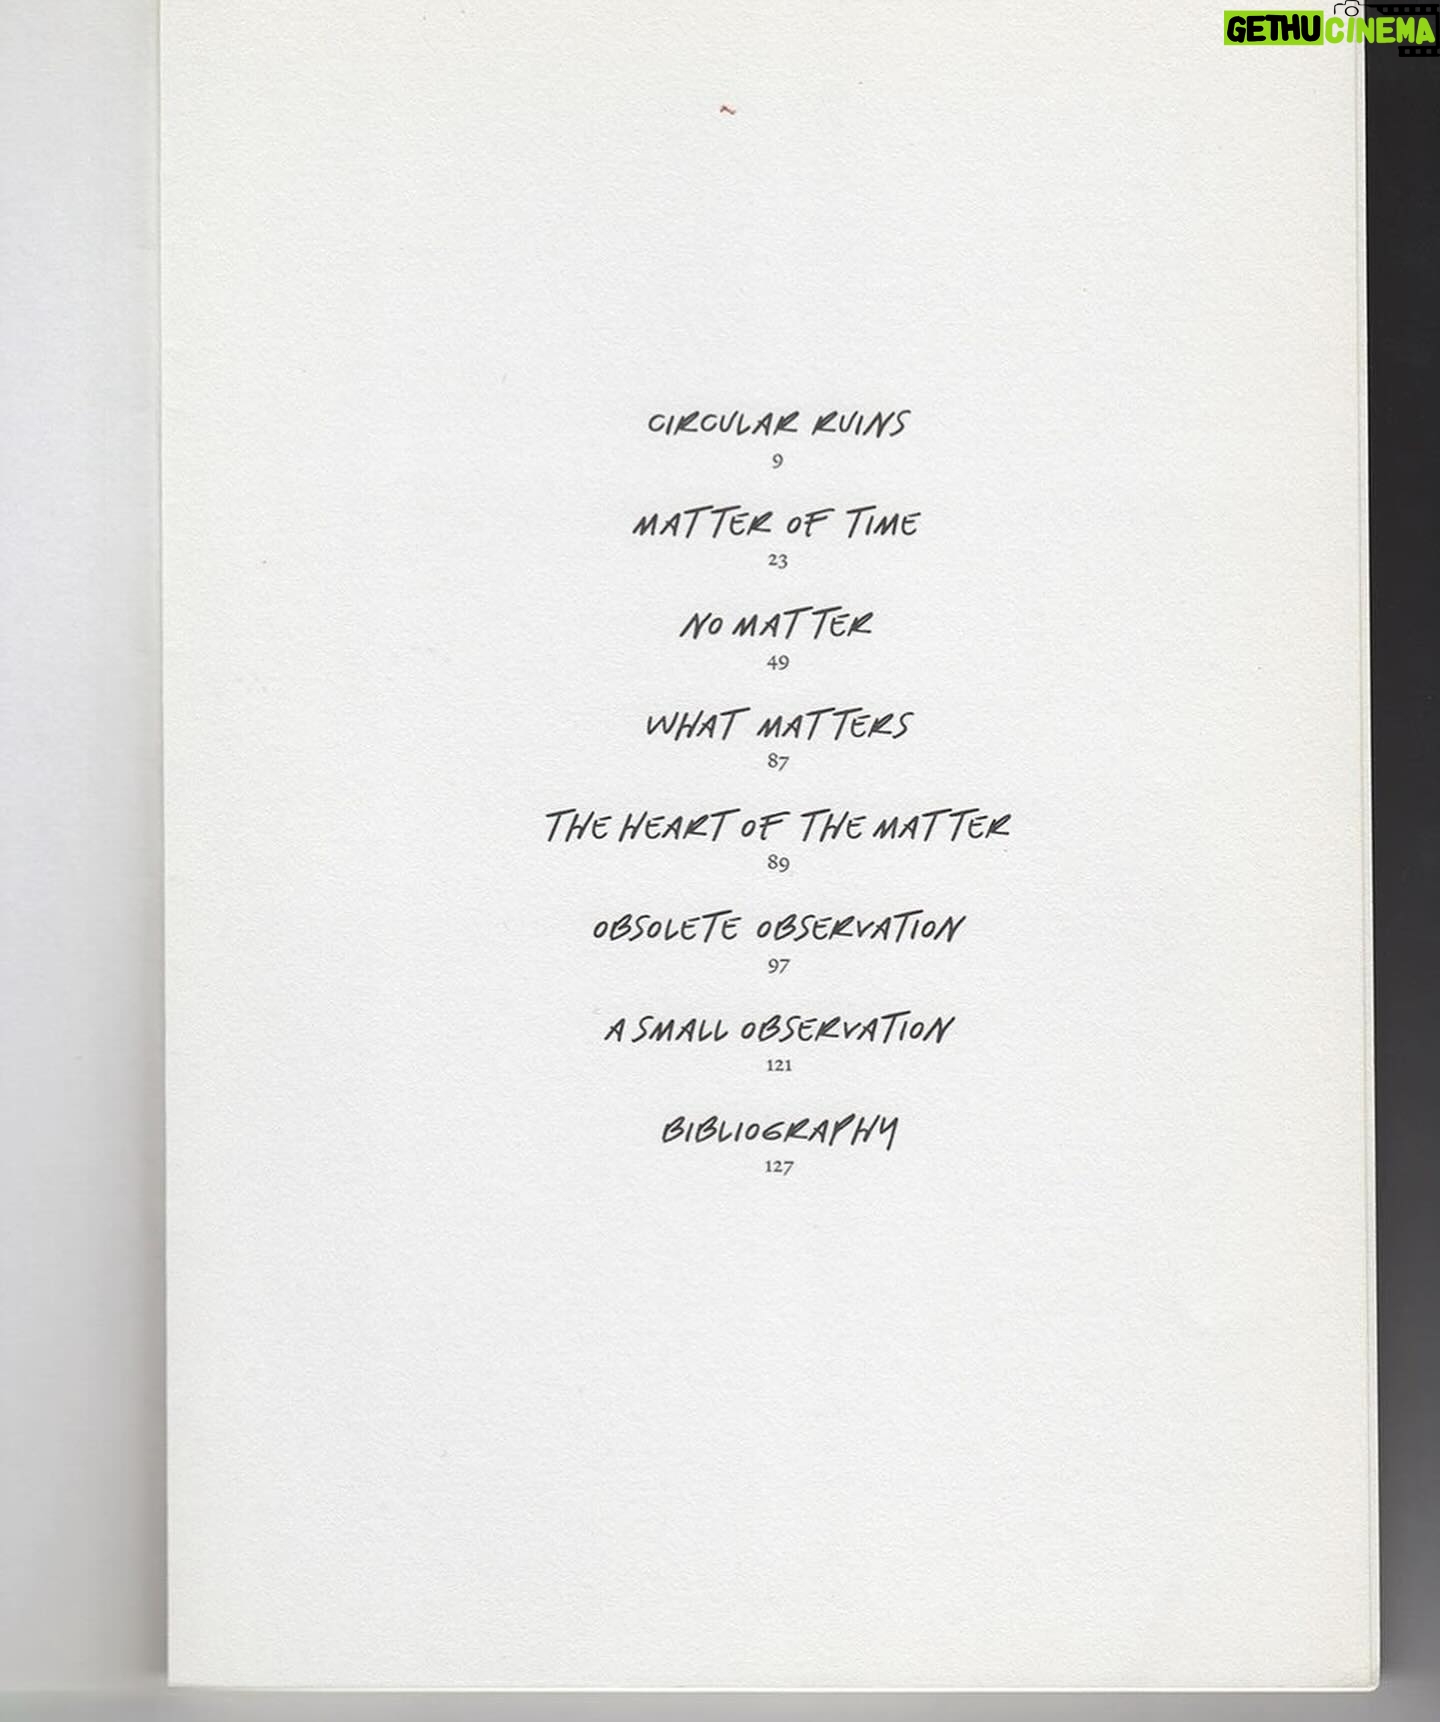 GETHUCINEMA
CIRCULAR RUINS
9
MATTER OF TIME
23
NO MATTER
49
WHAT MATTERS
87
THE HEART OF THE MATTER
89
OBSOLETE OBSERVATION
97
A SMALL OBSERVATION
121
BIBLIOGRAPHY
127